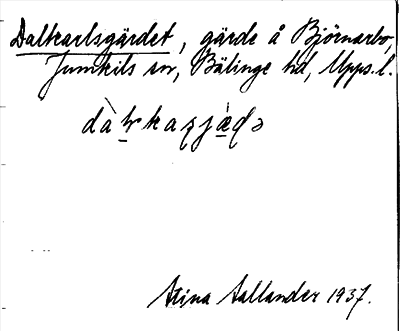 Dalkarlsgärdet, gärde å Björnarbo,
Jumkils sn, Bälinge hd, Upps. l.
Stina Sallander 1937.